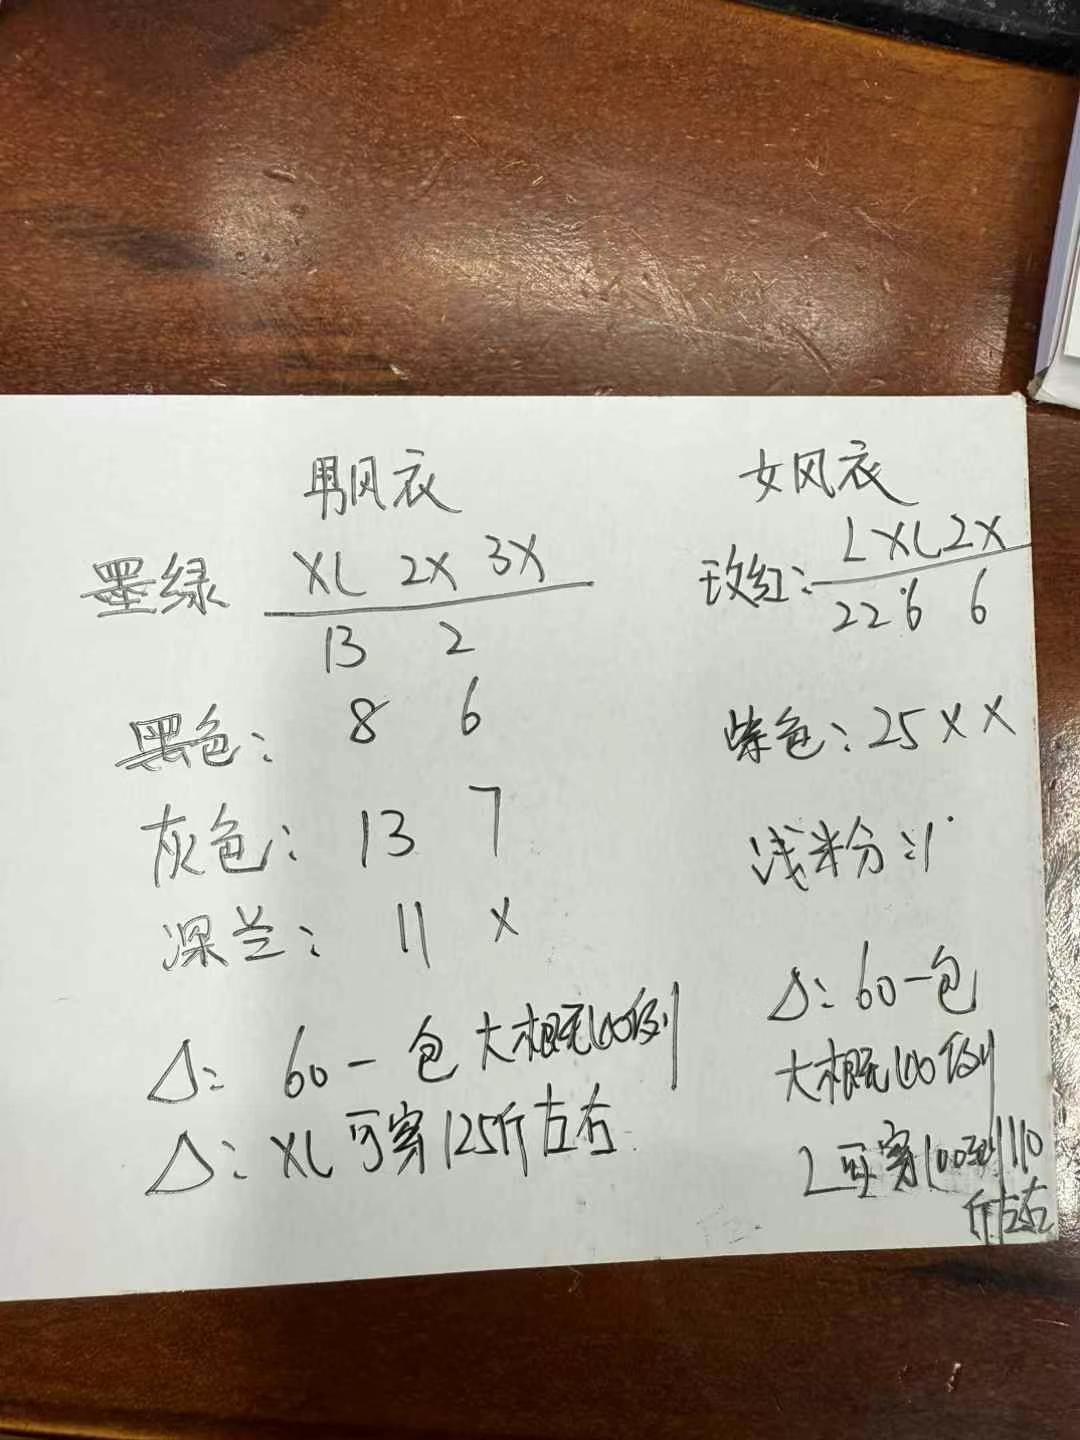 男风衣
墨绿 XL 2X 3X
13 2
黑色: 8 6
灰色: 13 7
深兰: 11 X
△: 60一包 大概100多
△: XL可穿125斤左右
女风衣
玫红: L XL 2X
22 6 6
紫色: 25 X X
浅米粉: 1
△: 60一包
大概100
L可穿100到110
斤左右